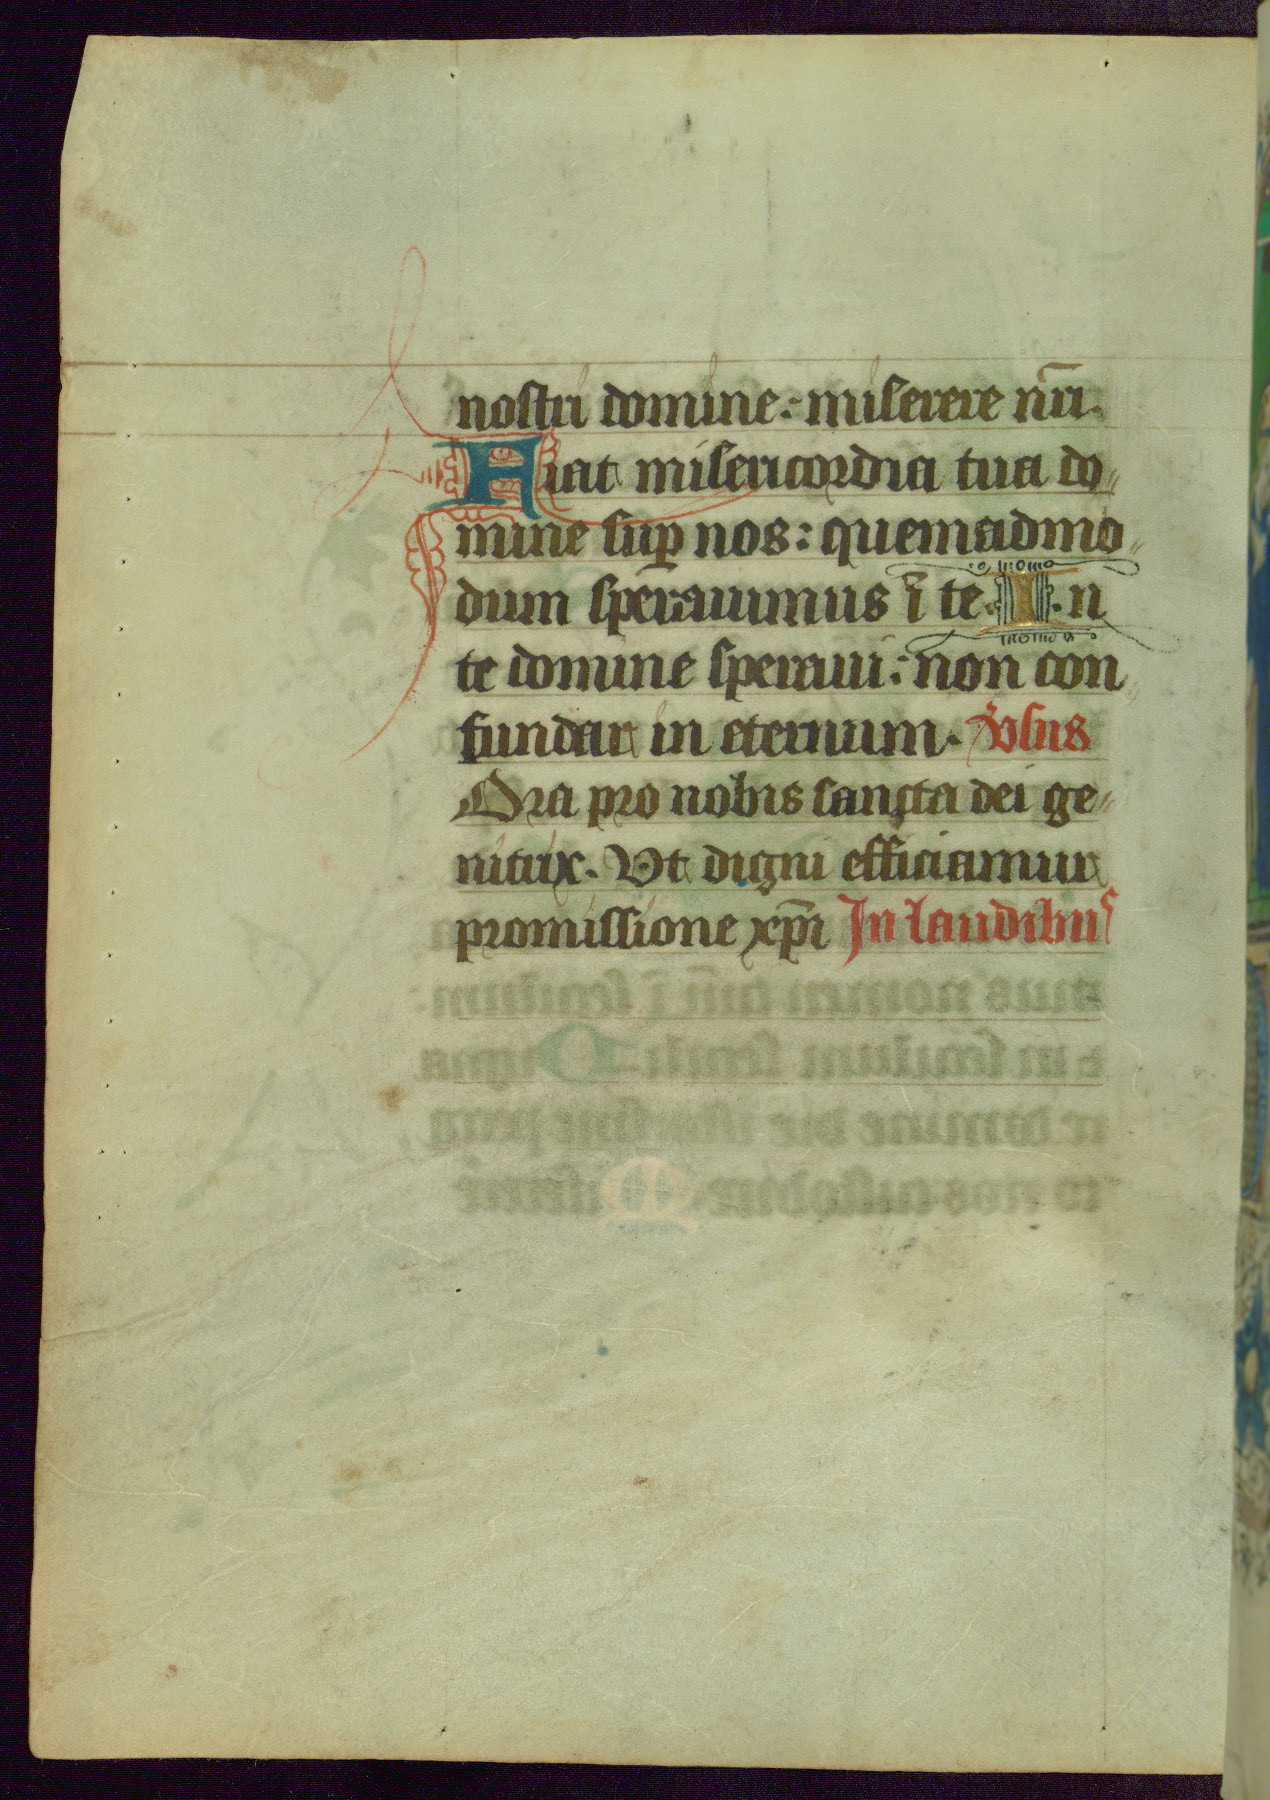 nostri domine: miserere nr̄i.
Fiat misericordia tua do⸗
mine suꝑ nos: quemadmo⸗
dum sperauimus ī te. In
te domine speraui: non con
fundar in eternum. v̄sus
Ora pro nobis sancta dei ge⸗
nitrix. Vt digni efficiamur
promissione xp̄i In laudibus